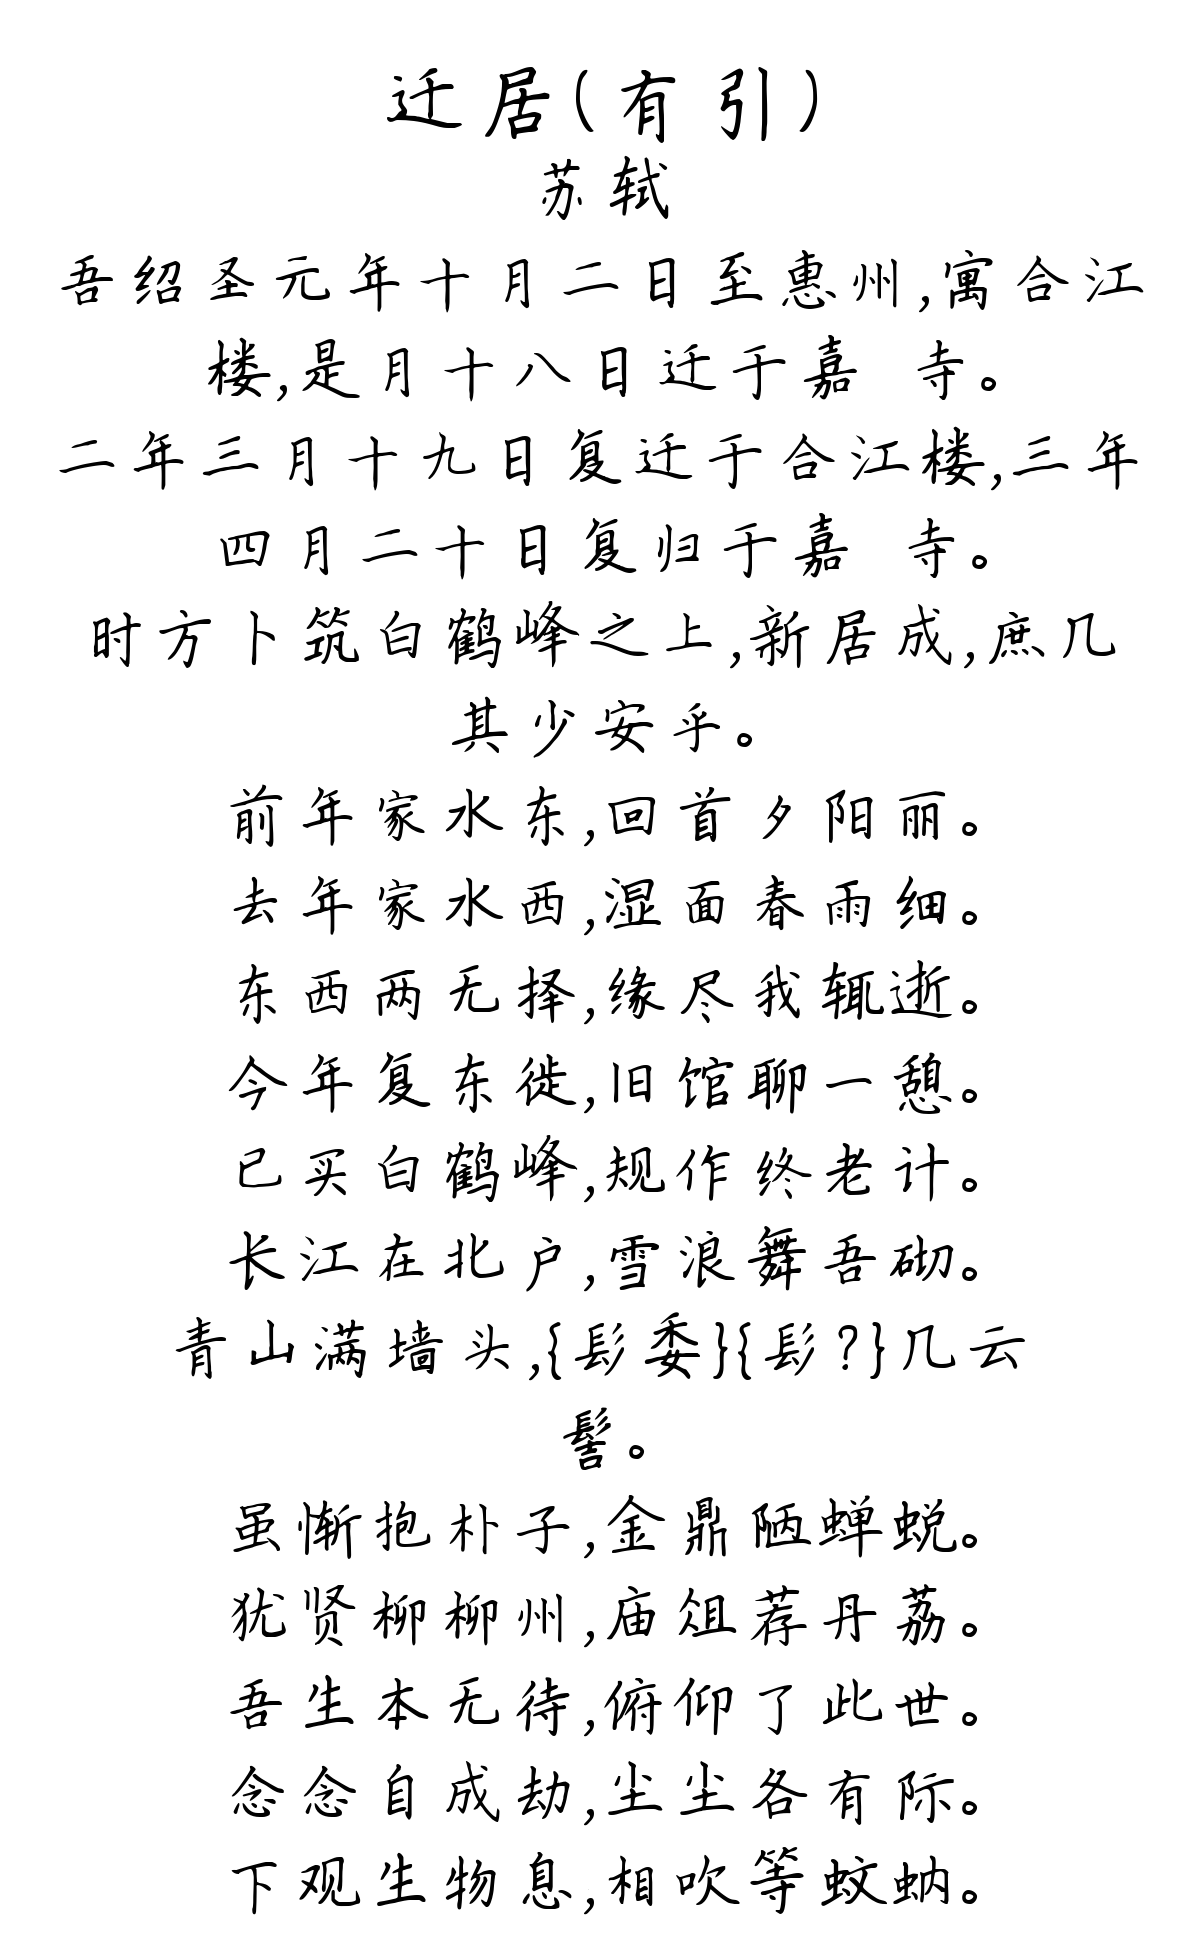 迁居(有引)
苏轼
吾绍圣元年十月二日至惠州,寓合江
楼,是月十八日迁于嘉 寺。
二年三月十九日复迁于合江楼,三年
四月二十日复归于嘉 寺。
时方卜筑白鹤峰之上,新居成,庶几
其少安乎。
前年家水东,回首夕阳丽。
去年家水西,湿面春雨细。
东西两无择,缘尽我辄逝。
今年复东徙,旧馆聊一憩。
已买白鹤峰,规作终老计。
长江在北户,雪浪舞吾砌。
青山满墙头,{髟委}{髟?}几云
髻。
虽惭抱朴子,金鼎陋蝉蜕。
犹贤柳柳州,庙俎荐丹荔。
吾生本无待,俯仰了此世。
念念自成劫,尘尘各有际。
下观生物息,相吹等蚊蚋。